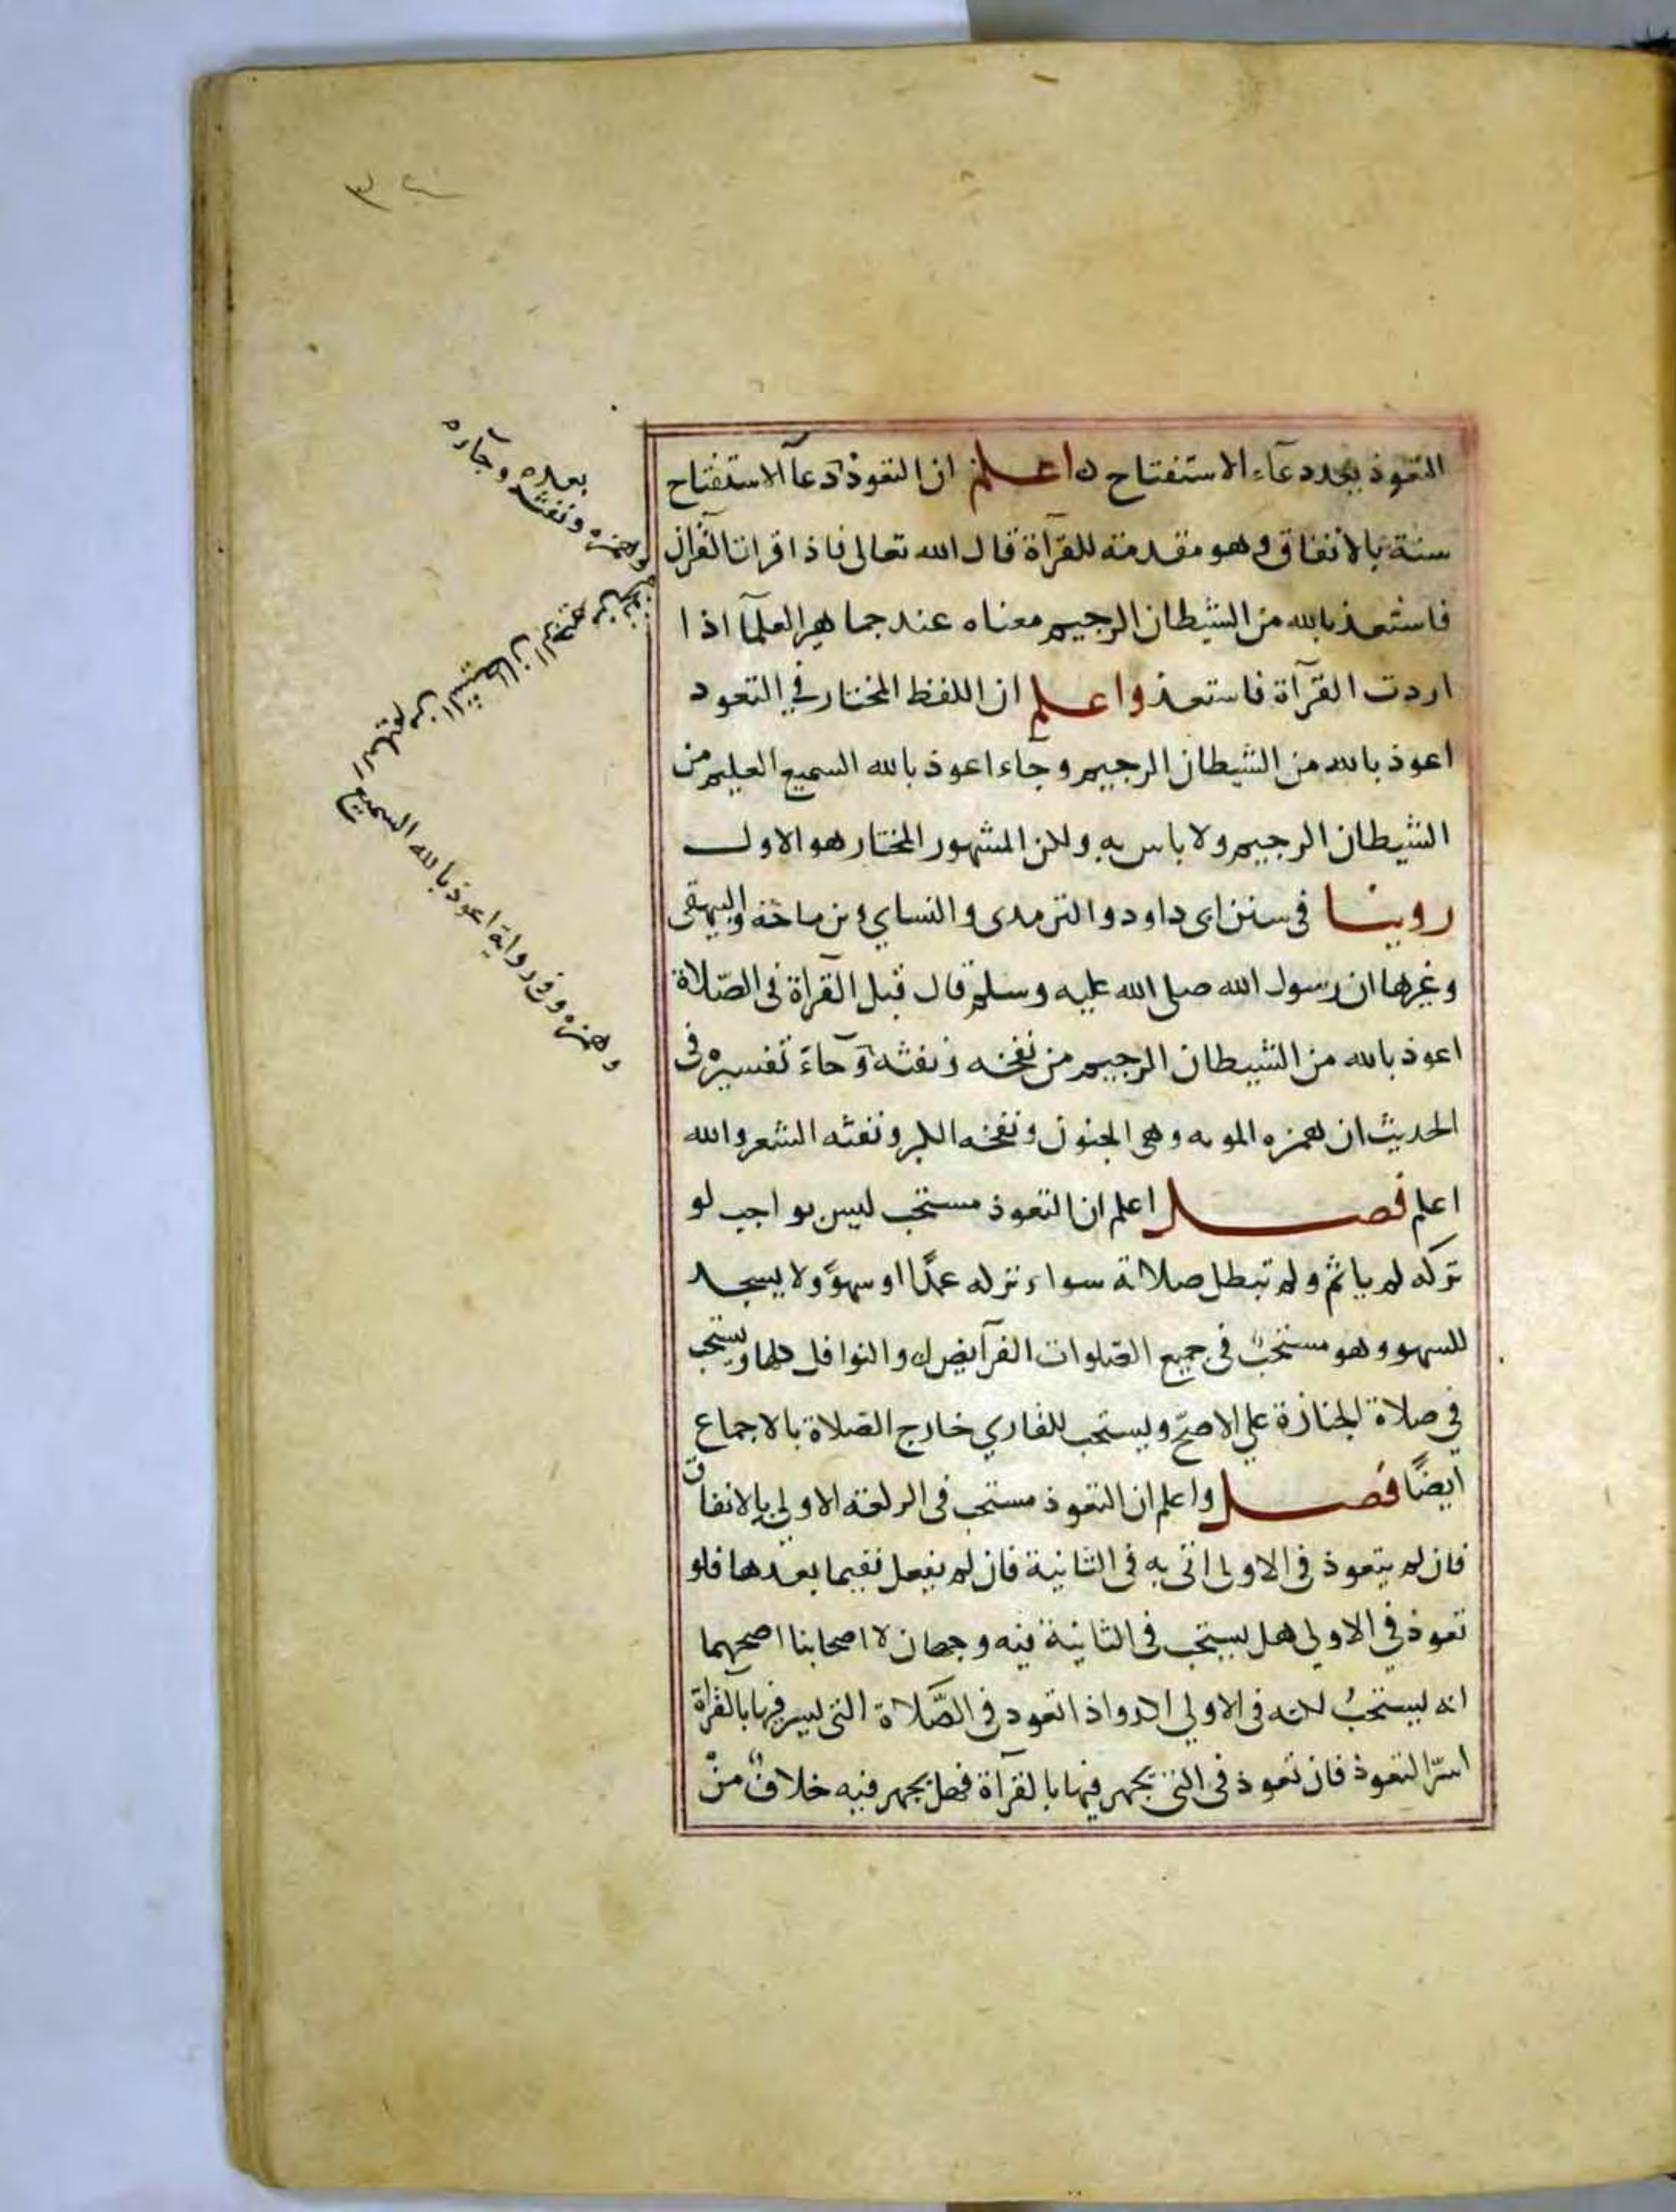 التعوذ بعد دعاء الاستفتاح اعلم ان التعوذ دعآ الاستفتاح
سنة بالاتفاق وهو مقدمة للقرآة قال الله تعالى فاذا قرات القرآن
فاستعذ بالله من الشيطان الرجيم معناه عند جماهير العلمآ اذا
اردت القرآة فاستعذ واعلم ان اللفظ المختار في التعود
اعوذ بالله من الشيطان الرجيم وجاء اعوذ بالله السميع العليم من
الشيطان الرجيم ولا باس به ولكن المشهور المختار هو الاول
روينا فى سنن ابى داود والترمدى والنساي وبن ماجة والبيهقى
وغيرها ان رسول الله صلى الله عليه وسلم قال قبل القرآة فى الصّلاة
اعوذ بالله من الشيطان الرجيم من نفخه ونفثه وجاءَ تفسيره فى
الحديث ان همزه الموته وهى الجنون ونفخه الكبر ونفثه الشعر والله
اعلم فصل اعلم ان التعوذ مستحب ليس بواجب لو
تركه لم ياثم ولم تبطل صلاتة سواء تركه عمدًا او سهوًا ولا يسجد
للسهو وهو مستحبٌ فى جميع الصلوات الفرآيض والنوافل كلها ويستحب
في صلاة الجنازة علي الاصحّ ويستحب للقاري خارج الصلاة بالاجماع
ايضًا فصل واعلم ان التعوذ مستحب فى الركعة الاولي بالاتفاق
فان لم يتعوذ فى الاولى اتى به فى الثانية فان لم يفعل ففيما بعدها فلو
تعوذ في الاولى هل يستحب فى الثانية فيه وجهان لاصحابنا اصحهما
انه يستحبُ لكنه فى الاولي اكد واذا تعود فى الصَّلاة التى يسر فيها بالقرآة
اسرّ التعوذ فان تعوذ فى التى يجهر فيها بالقرآة فهل يجهر فيه خلافٌ منْ
وهمزه ونفثه وجآره
بعده
الشيطان الرجيم
وهمزه وفى رواية اعوذ بالله السميع